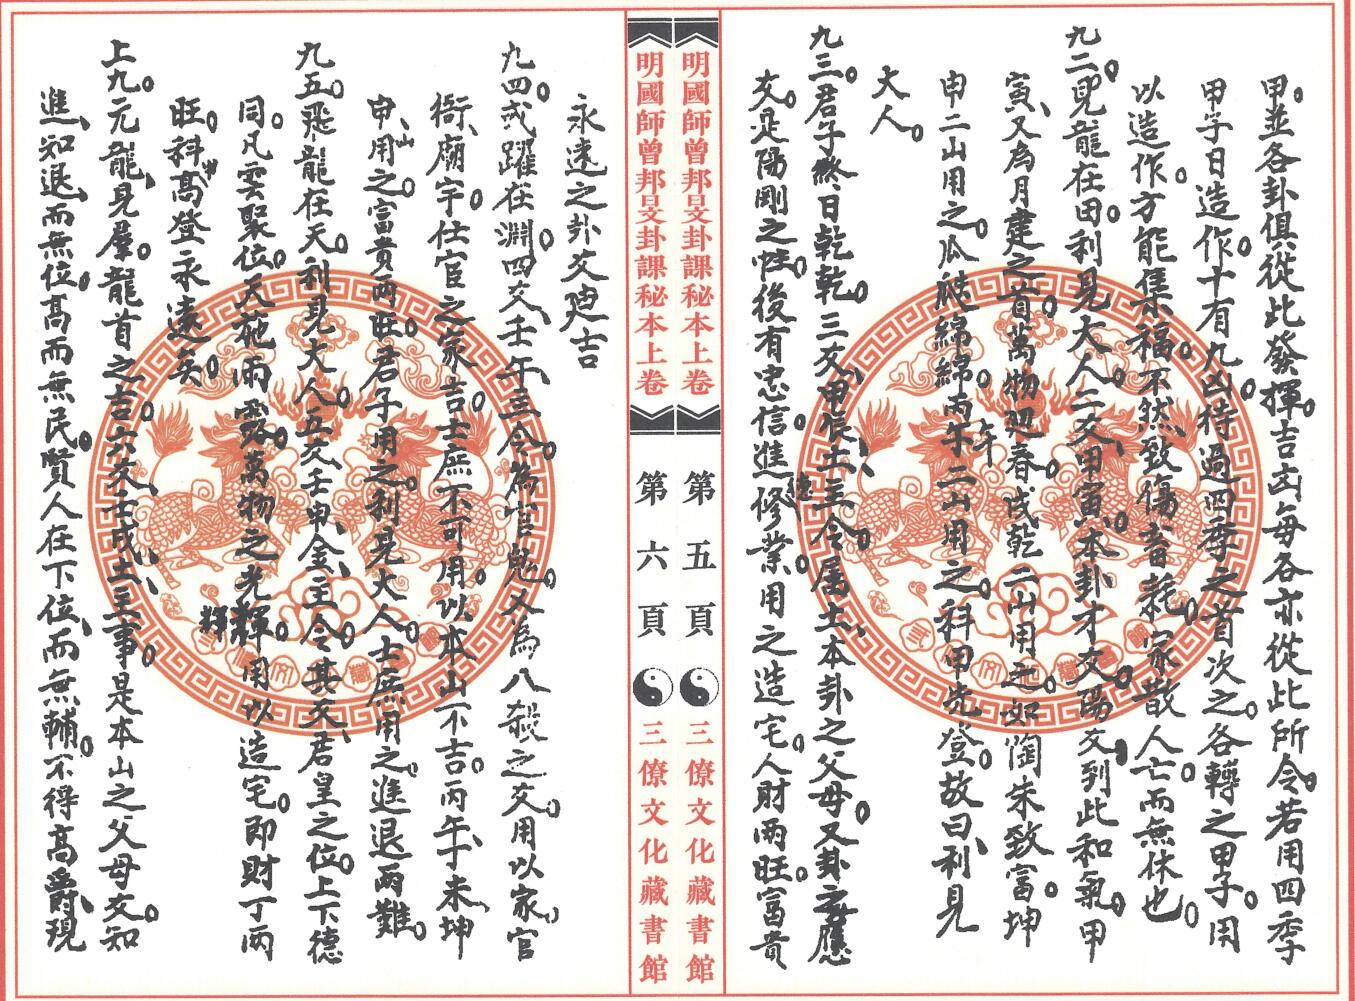 甲。並各卦俱從此發揮。吉凶每各亦從此所令。若用四季
甲子日造作。十有九凶。待過四季之首次之。各轉之甲子。用
以造作。方能集福。不然、致傷畜耗。家散人亡。而無休也。
九二。見龍在田。利見大人。二爻甲寅。本卦才爻。陽爻到此和氣。甲
寅、又為月建之首。萬物迎春。戌乾二山用之。如陶朱致富。坤
申二山用之。瓜瓞綿綿。丙午二山用之。科甲先登。故曰、利見
午
大人。
九三。君子終日乾乾。三爻、甲辰、土主令。屬土。本卦之父母。又卦之應
爻。是陽剛之性。後有忠信進修業。用之造宅。人財兩旺。富貴
德
明國師曾邦旻卦課秘本上卷
第五頁
三僚文化藏書館
明國師曾邦旻卦課秘本上卷
第六頁
三僚文化藏書館
永遠之卦爻迪吉
九四。或躍在淵。四爻、壬午、三令。為官鬼。又為八殺之爻。用以家。官
衙、廟宇。仕宦之家吉。士庶不可用。以本山不吉。丙午、丁未、坤
申、用之。富貴兩旺。君子用之。利見大人。士庶用之。進退兩難。
山
九五。飛龍在天。利見大人。五爻、壬申、金、主令。其天、君皇之位。上下德
同。凡雲聚位。天花雨露。萬物之光輝。用以造宅。即財丁兩
輝
旺。科高登永遠矣。
甲
上九。元龍、見群龍首之吉。六爻、壬戌、土、主事。是本山之父母爻。知
進、知退、而無位。高而無民。賢人在下位、而無輔。不得高爵、現